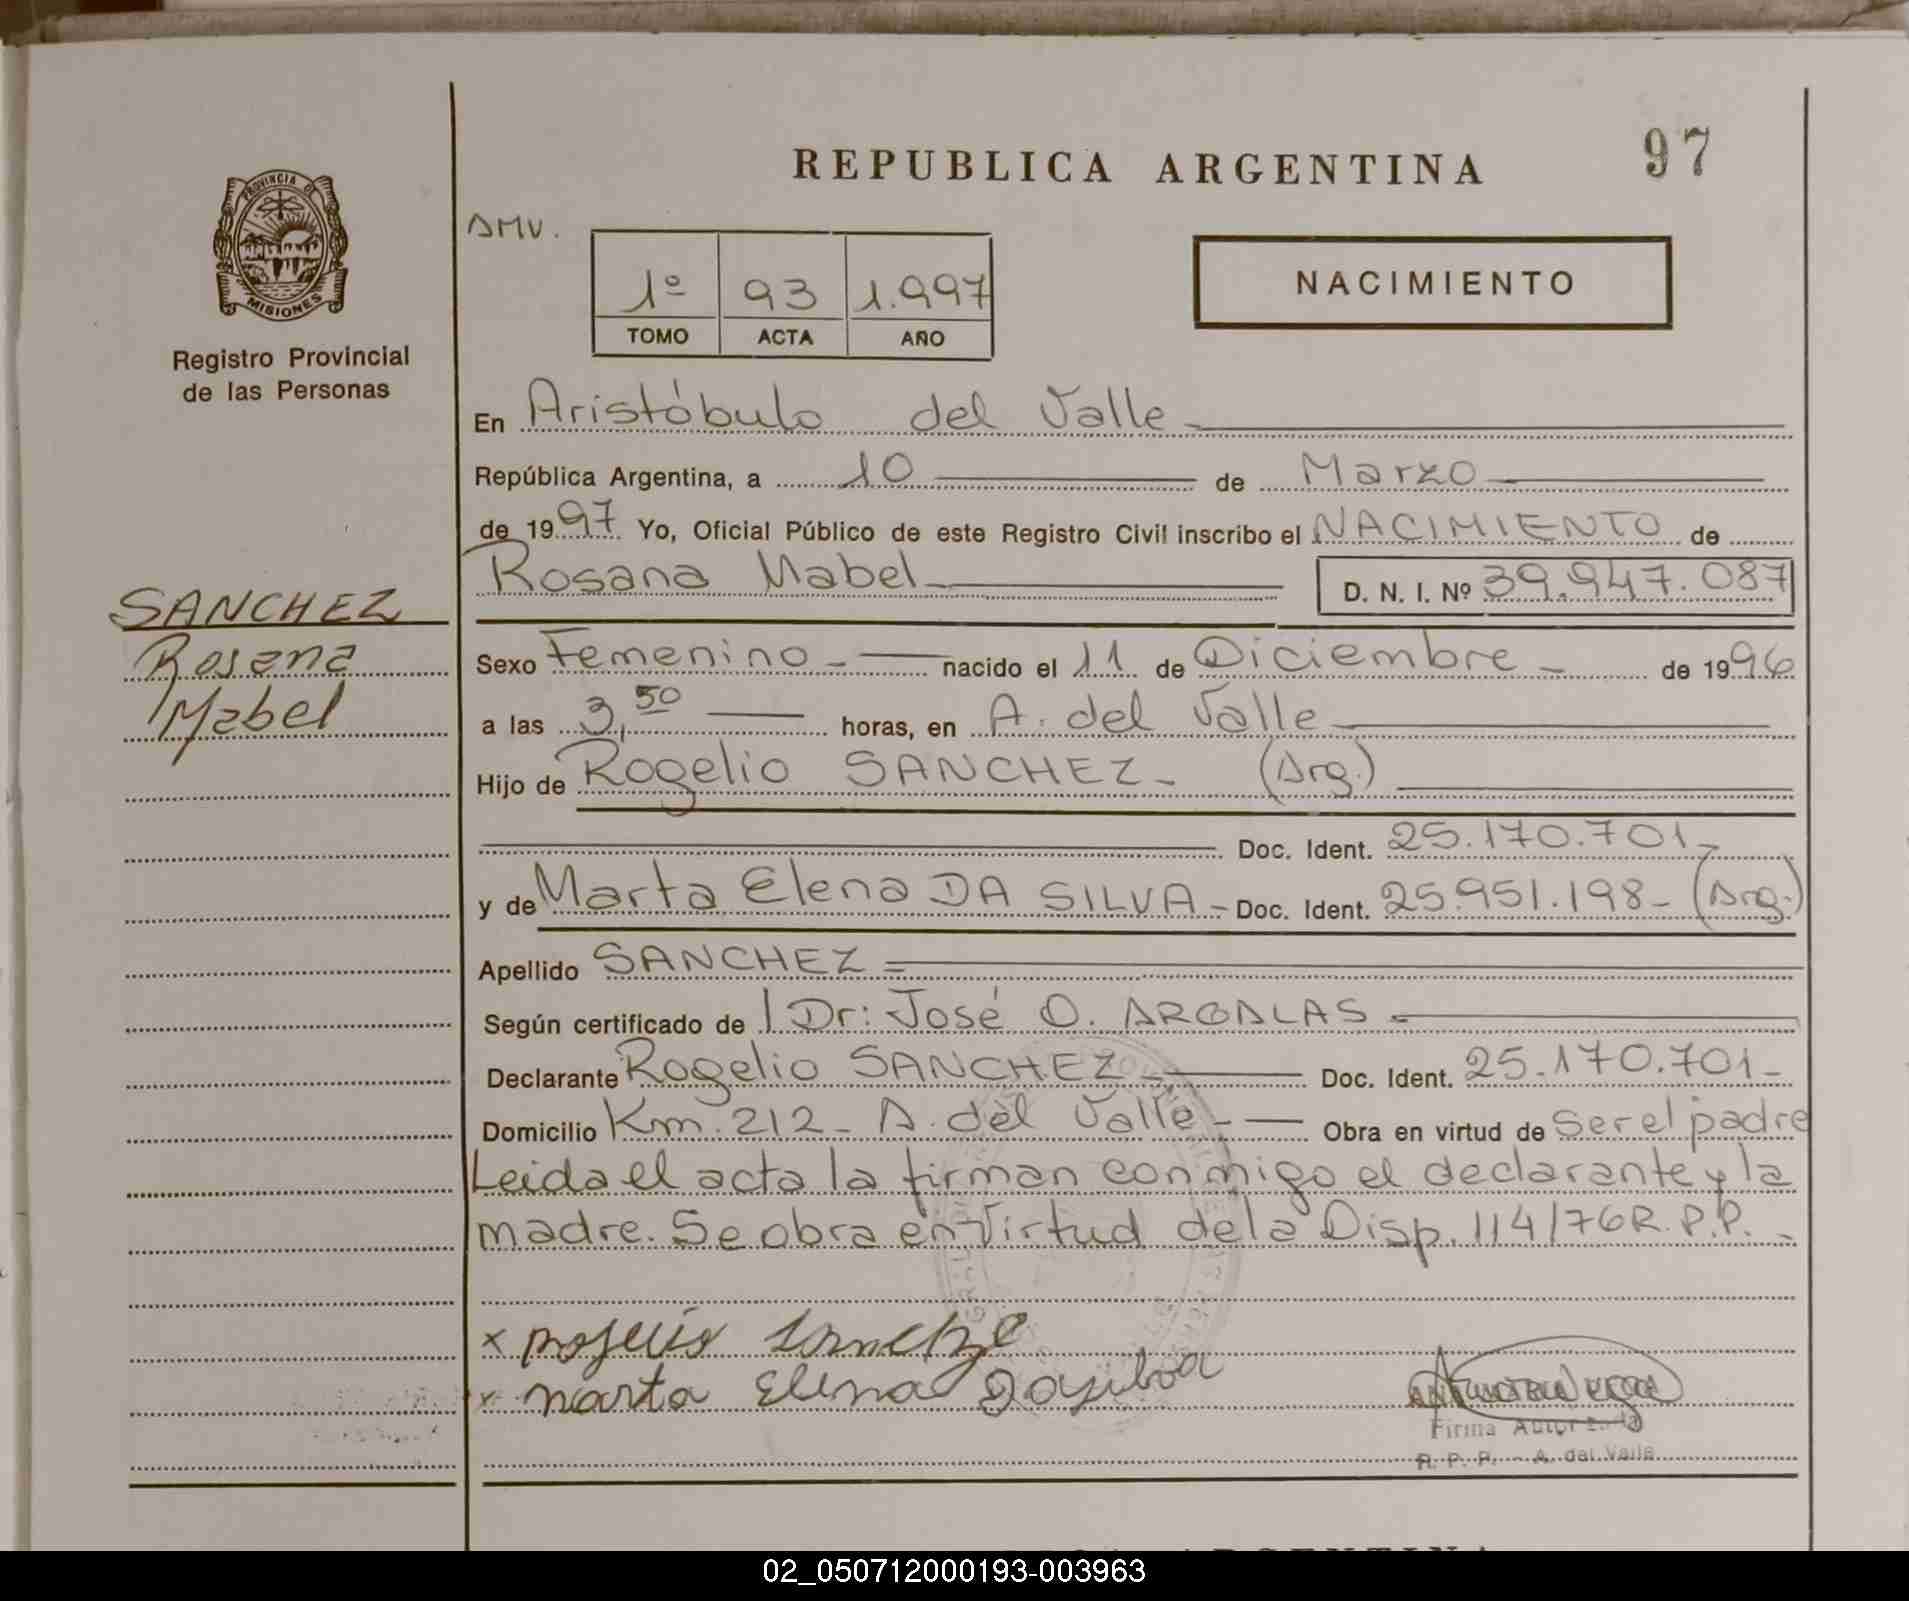 REPUBLICA ARGENTINA
97
PROVINCIA DE
MISIONES
Registro Provincial
de las Personas
AMV.
1º 93 1.997
TOMO ACTA AÑO
NACIMIENTO
En Aristóbulo del Valle
República Argentina, a 10 de Marzo
de 1997 Yo, Oficial Público de este Registro Civil inscribo el NACIMIENTO de
Rosana Mabel D. N. I. Nº 39.947.087
SANCHEZ
Rosana
Mabel
Sexo Femenino nacido el 11 de Diciembre de 1996
a las 3,50 horas, en A. del Valle
Hijo de Rogelio SANCHEZ (Arg.)
Doc. Ident. 25.170.701
y de Marta Elena DA SILVA Doc. Ident. 25.951.198 (Arg.)
Apellido SANCHEZ
Según certificado de Dr: José O. ARGALAS
Declarante Rogelio SANCHEZ Doc. Ident. 25.170.701
Domicilio Km. 212 A. del Valle Obra en virtud de Ser el padre
Leida el acta la firman conmigo el declarante y la
madre. Se obra en virtud de la Disp. 114/76 R.P.P.
x
x Marta Elena
Firma Autorizada
R. P. P. - A. del Valle
02_050712000193-003963